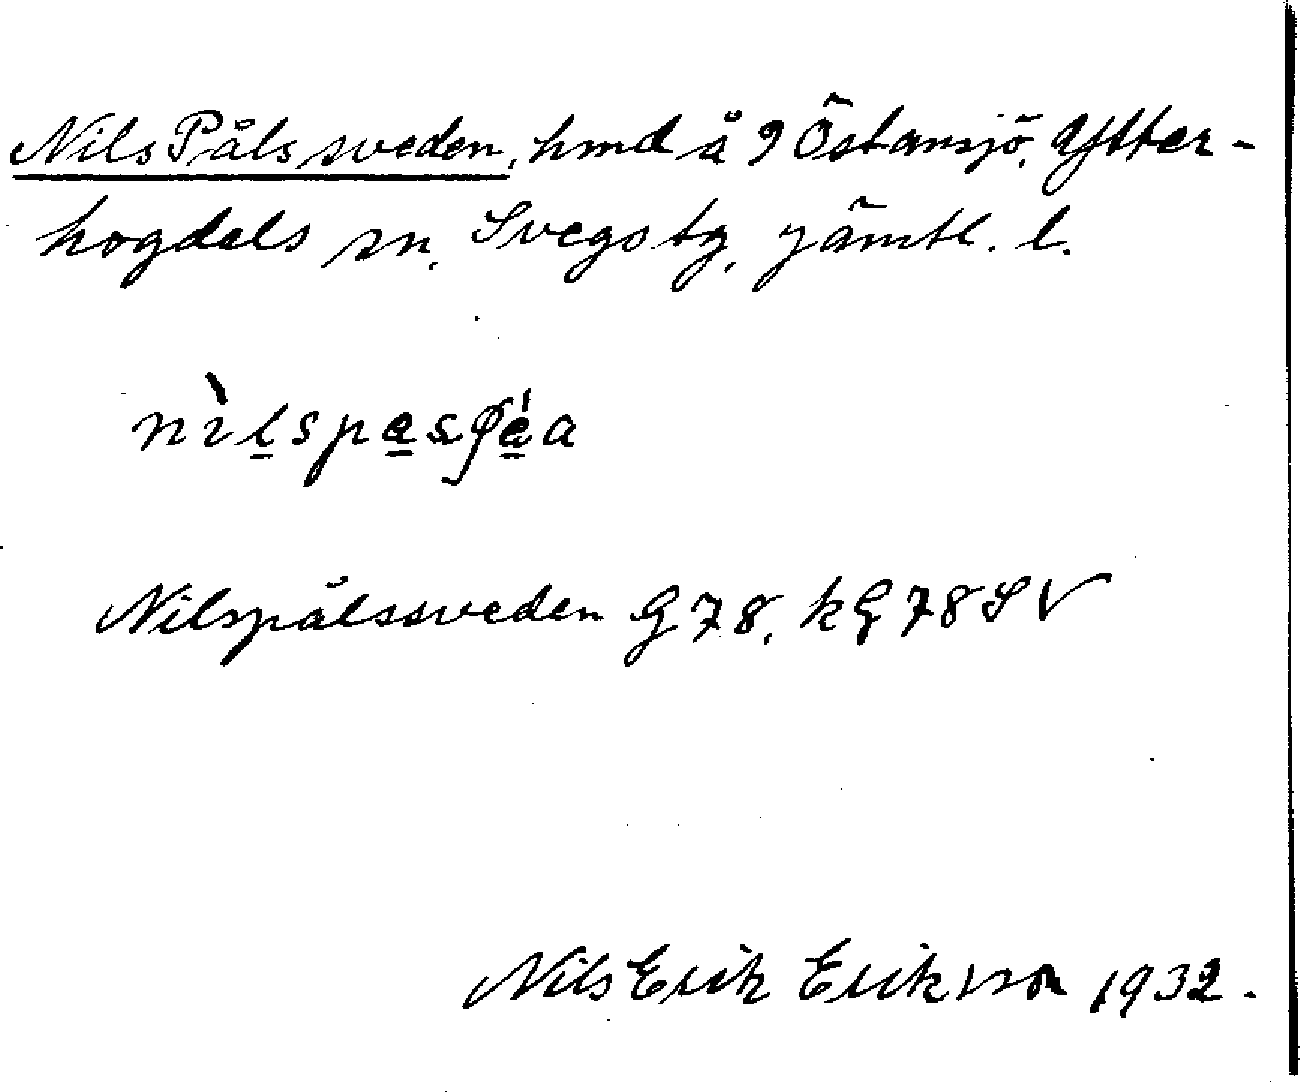 Nils Pålssveden, hmd å 9 Östansjö, Ytter-
hogdals sn, Svegs tg, Jämtl. l.
Nilspålssveden G78, kG78SV
Nils Erik Eriksson 1932.